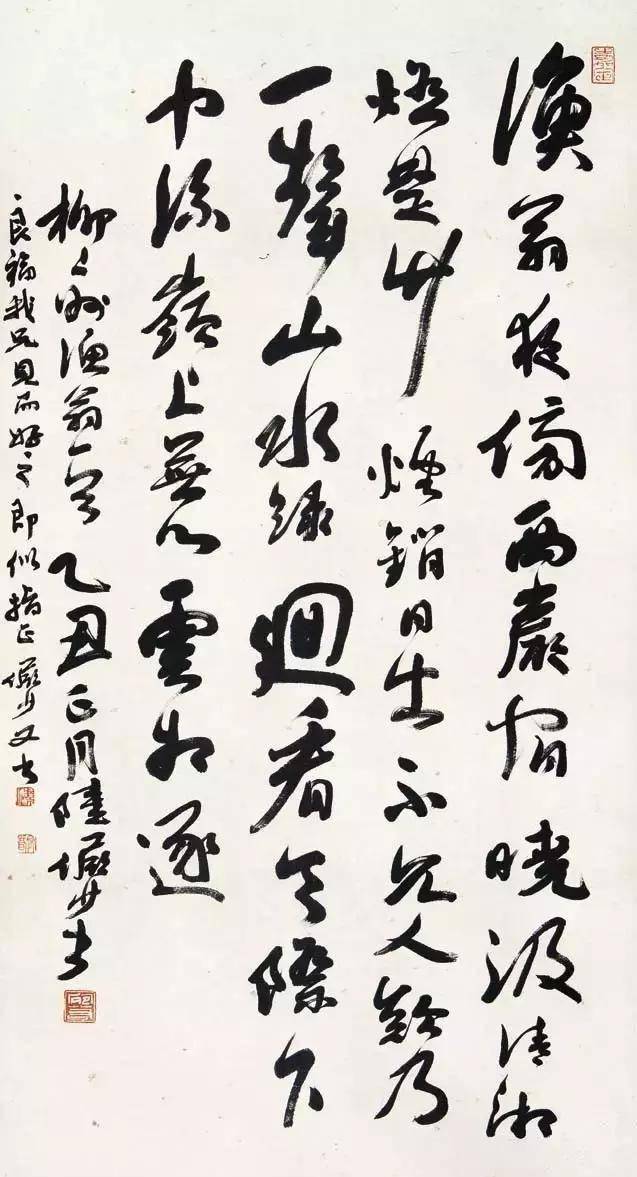 漁翁夜傍西巖宿曉汲清湘
燃楚竹煙銷日出不見人欸乃
一聲山水綠迴看天際下
中流巖上無心雲相逐
柳々州漁翁乙丑正月陸儼少書
我兄見而好之即似指正儼少又書